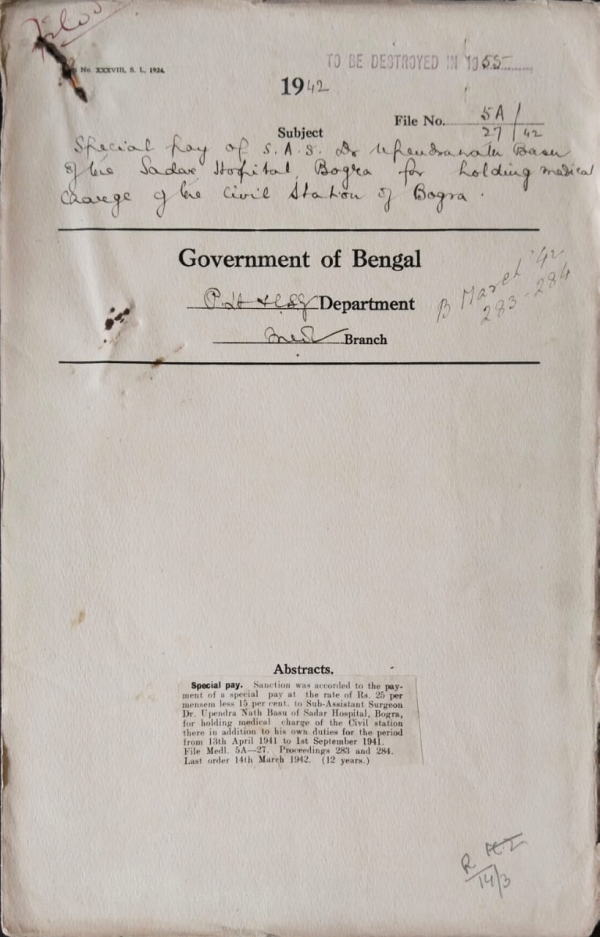 No. XXXVIII, S. L. 1924.
TO BE DESTROYED IN 1955
1942
File No. 5A/
27/42
Subject
Special pay of S. A. S. Dr Upendranath Basu
of the Sadar Hospital, Bogra for holding medical
charge of the Civil Station of Bogra.
Government of Bengal
Department
B March '42
283-284
Branch
Abstracts.
Special pay. Sanction was accorded to the pay-
ment of a special pay at the rate of Rs. 25 per
mensem less 15 per cent. to Sub-Assistant Surgeon
Dr. Upendra Nath Basu of Sadar Hospital, Bogra,
for holding medical charge of the Civil station
there in addition to his own duties for the period
from 13th April 1941 to 1st September 1941.
File Medl. 5A—27. Proceedings 283 and 284.
Last order 14th March 1942. (12 years.)
14/3